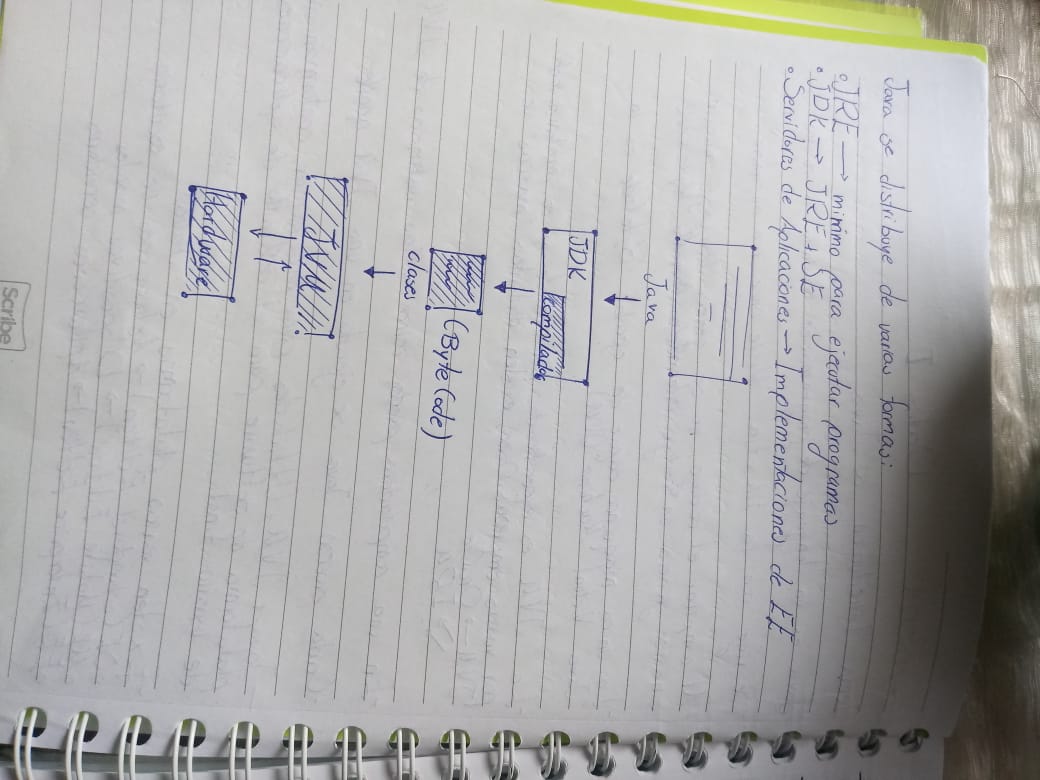 Java se distribuye de varias formas:
• JRE → minimo para ejecutar programas
• JDK → JRE + SE
• Servidores de Aplicaciones → Implementaciones de EE
Java
JDK
Compilador
(Byte Code)
clases
JVM
Hardware
Scribe